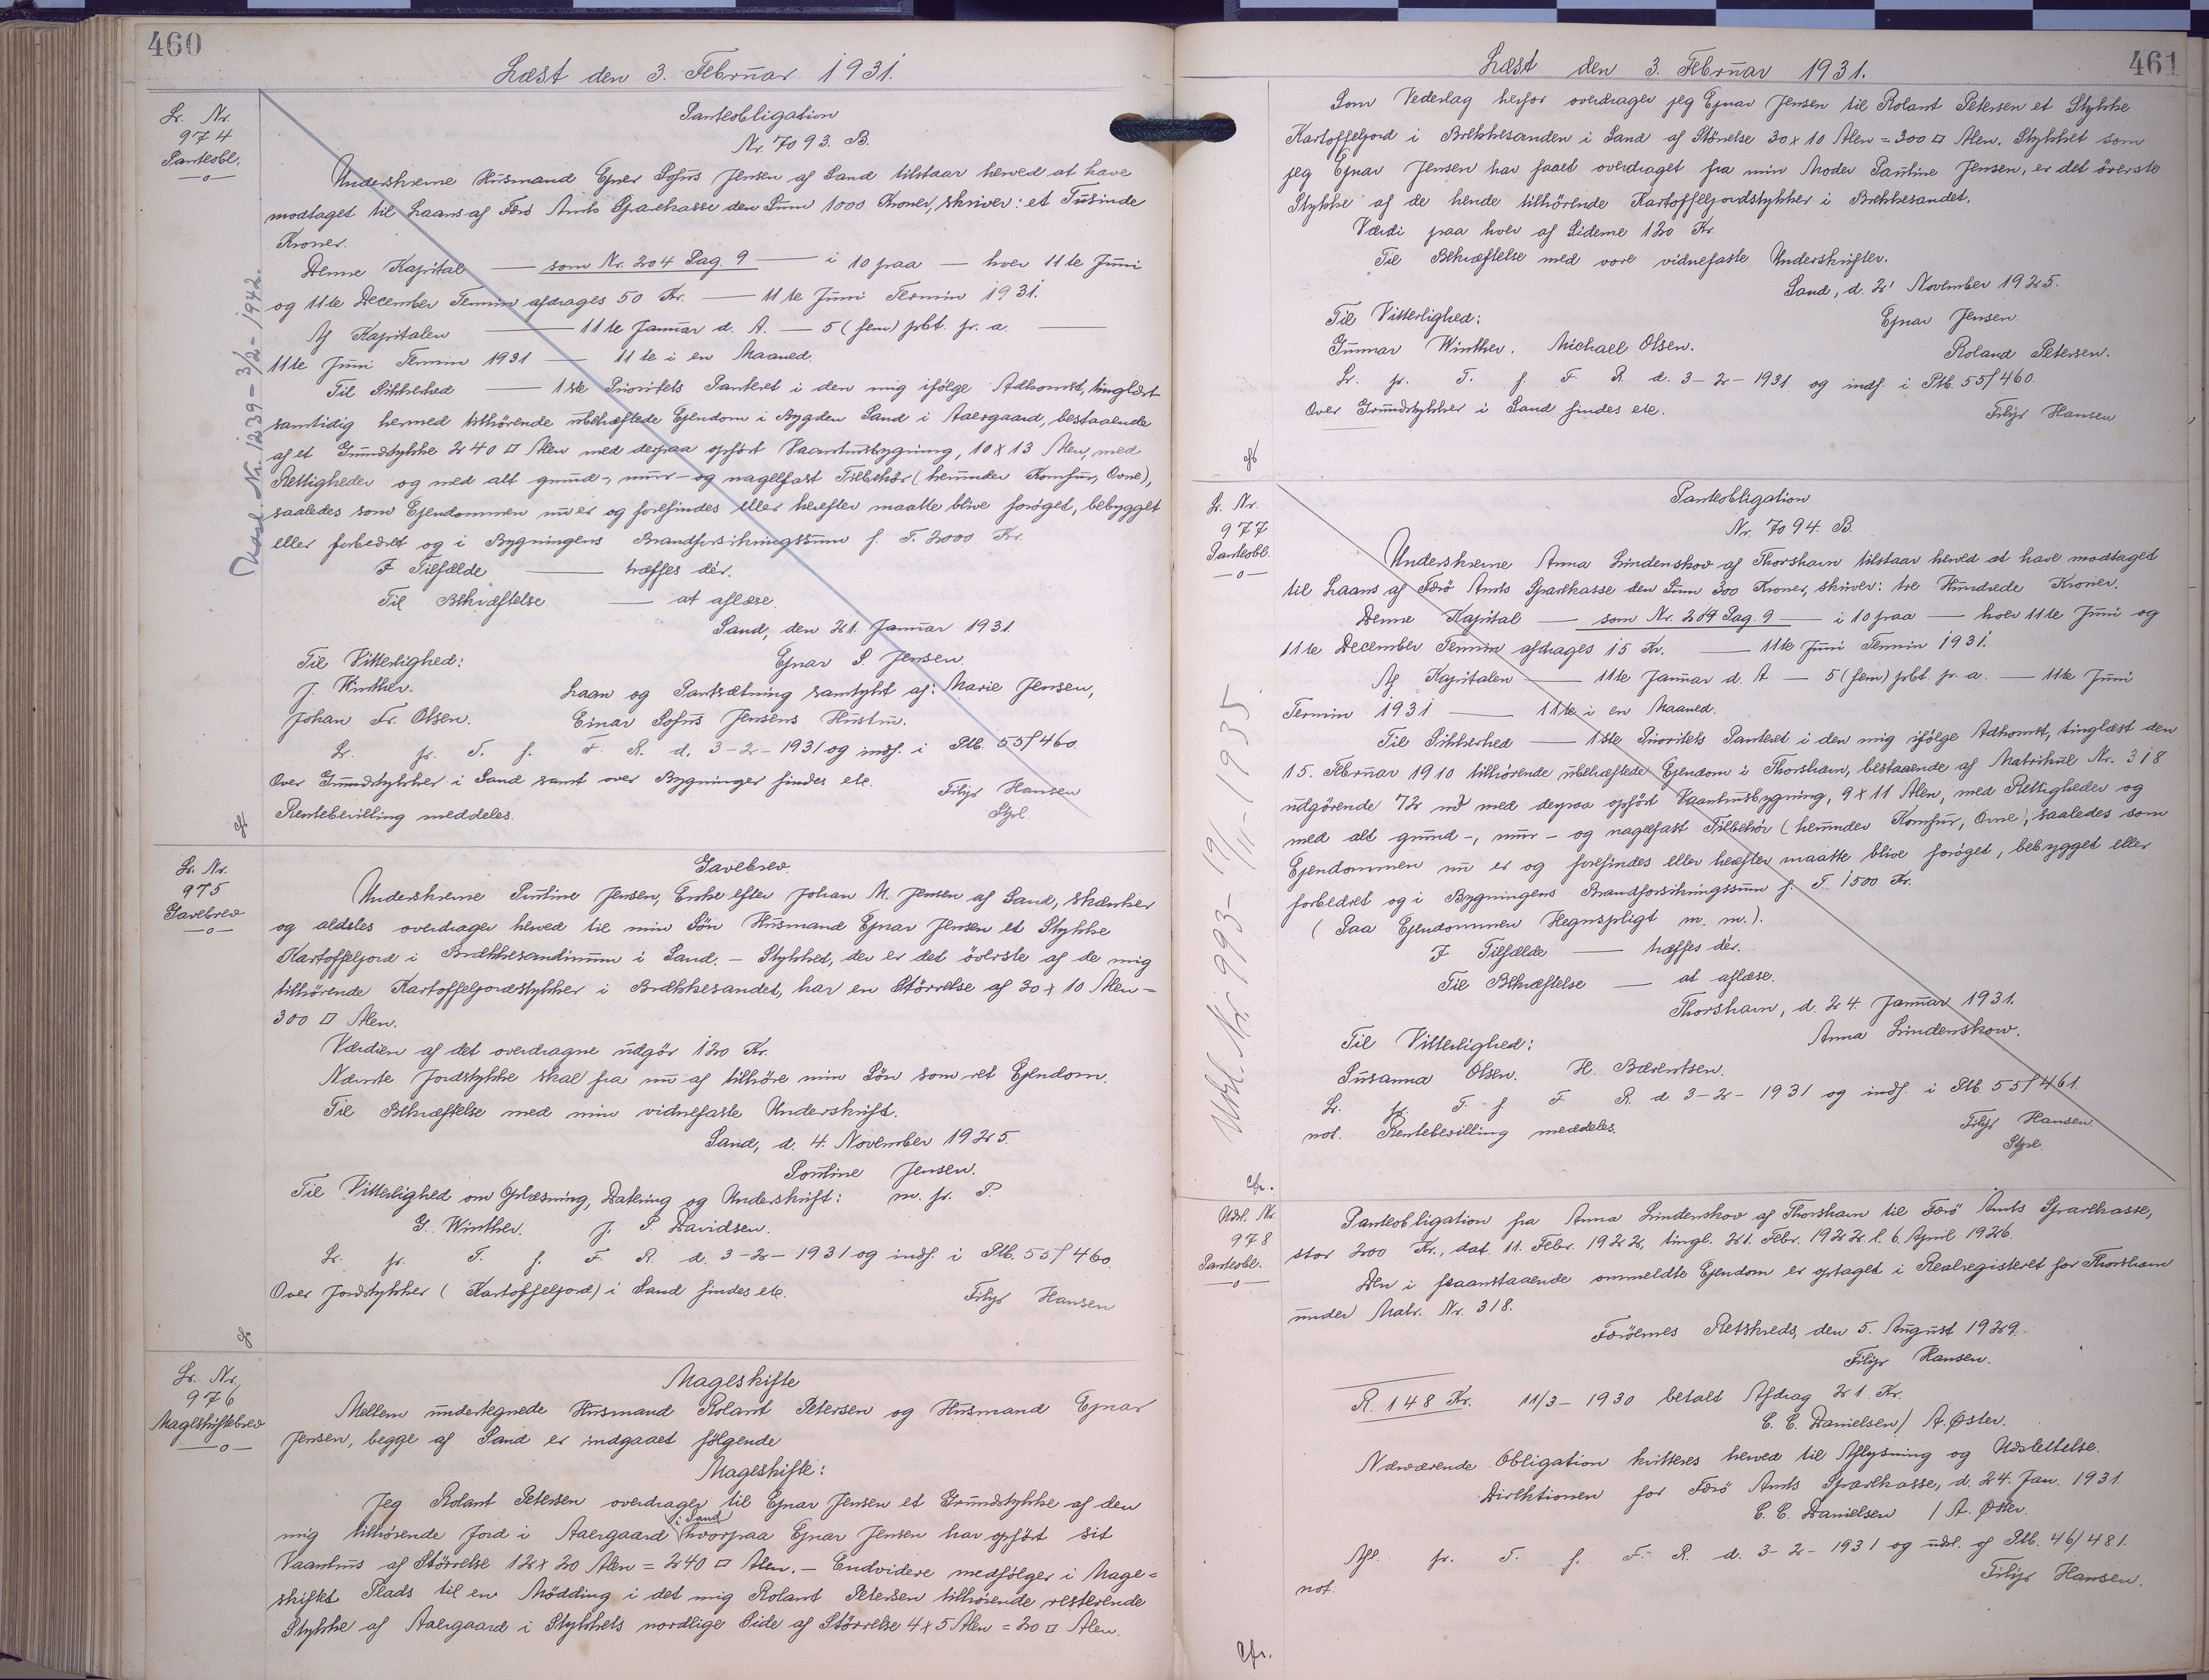 460
Læst den 3. Februar 1931.
Lr. Nr.
974
Panteobl.
Panteobligation
Nr. 7093. B.
Underskrevne Husmand Ejner Sofus Jensen af Sand tilstaar herved at have
modtaget til Laans af Færö Amts Sparekasse den Sum 1000 Kroner, skriver: et Tusinde
Kroner.
Denne Kapital — som Nr. 204 Pag. 9 — i 10 paa — hver 11te Juni
og 11te December Termin afdrages 50 Kr. — 11te Juni Termin 1931.
Af Kapitalen — 11te Januar d. A. — 5 (fem) pct. pr. a. —
11te Juni Termin 1931 — 11te i en Maaned.
Til Sikkerhed — 1ste Prioritets Panteret i den mig ifölge Adkomst, tinglæst
samtidig hermed tilhörende ubehæftede Ejendom i Bygden Sand i Aaergaard, bestaaende
af et Grundstykke 240 □ Alen med derpaa opfört Vaanhusbygning, 10 x 13 Alen, med
Rettigheder og med alt grund-, mur- og nagelfast Tilbehör (herunder Komfur, Ovne),
saaledes som Ejendommen nu er og forefindes eller herefter maatte blive foröget, bebygget
eller forbedret og i Bygningens Brandforsikringssum f. T. 2000 Kr.
I Tilfælde — træffes dér.
Til Bekræftelse — at aflæse.
Sand, den 21. Januar 1931.
Til Vitterlighed: Ejnar S. Jensen.
J. Winther. Laan og Pantsætning samtykt af: Marie Jensen,
Johan Fr. Olsen. Einar Sofus Jensens Hustru.
Lr. pr. T. f. F. R. d. 3-2-1931 og indf. i Ptb. 55/460.
Over Grundstykker i Sand samt over Bygninger findes etc.
Filip Hansen
Rentebevilling meddeles.
Udsl. Nr. 1239 - 3/2 - 1942.
Lr. Nr.
975
Gavebrev
Gavebrev.
Underskrevne Putine Jensen, Enke efter Johan M. Jensen af Sand, skænker
og aldeles overdrager herved til min Sön Husmand Ejnar Jensen et Stykke
Kartoffeljord i Brækkesandinum i Sand. - Stykket, der er det överste af de mig
tilhörende Kartoffeljordstykker i Brækkesandet, har en Störrelse af 30 x 10 Alen =
300 □ Alen.
Værdien af det overdragne udgör 120 Kr.
Nævnte Jordstykke skal fra nu af tilhöre min Sön som ret Ejendom.
Til Bekræftelse med min vidnefaste Underskrift.
Sand, d. 4. November 1925.
Poutine Jensen.
Til Vitterlighed om Oplæsning, Datering og Underskrift: m. p. P.
G. Winther. J. P. Davidsen.
Lr. pr. T. f. F. R. d. 3-2-1931 og indf. i Ptb. 55/460.
Over Jordstykker (Kartoffeljord) i Sand findes etc.
Filip Hansen
Lr. Nr.
976
Mageskiftebrev
Mageskifte
Mellem undertegnede Husmand Rolant Petersen og Husmand Ejnar
Jensen, begge af Sand er indgaaet fölgende
Mageskifte:
Jeg Rolant Petersen overdrager til Ejnar Jensen et Grundstykke af den
mig tilhörende Jord i Aaergaard i Sand hvorpaa Ejnar Jensen har opfört sit
Vaanhus af Störrelse 12 x 20 Alen = 240 □ Alen. - Endvidere medfölger i Mage=
skiftet Plads til en Mödding i det mig Rolant Petersen tilhörende resterende
Stykke af Aaergaard i Stykkets nordlige Side af Störrelse 4 x 5 Alen = 20 □ Alen.
461
Læst den 3. Februar 1931.
Som Vederlag herfor overdrager jeg Ejnar Jensen til Rolant Petersen et Stykke
Kartoffeljord i Brekkesanden i Sand af Störrelse 30 x 10 Alen = 300 □ Alen. Stykket som
jeg Ejnar Jensen har faaet overdraget fra min Moder Pautine Jensen, er det överste
Stykke af de hende tilhörende Kartoffeljordstykker i Brekkesandet.
Værdi paa hver af Siderne 120 Kr.
Til Bekræftelse med vore vidnefaste Underskrifter.
Sand, d. 2' November 1925.
Til Vitterlighed: Ejnar Jensen.
Gunnar Winther. Michael Olsen. Roland Petersen.
Lr. pr. T. f. F. R. d. 3-2-1931 og indf. i Ptb. 55/460.
Over Grundstykker i Sand findes etc.
Filip Hansen
Lr. Nr.
977
Panteobl.
Panteobligation
Nr. 7094. B.
Underskrevne Anna Lindenskov af Thorshavn tilstaar herved at have modtaget
til Laans af Færö Amts Sparekasse den Sum 300 Kroner, skriver: tre Hundrede Kroner.
Denne Kapital — som Nr. 204 Pag. 9 — i 10 paa — hver 11te Juni og
11te December Termin afdrages 15 Kr. — 11te Juni Termin 1931.
Af Kapitalen — 11te Januar d. A — 5 (fem) pct. pr. a. — 11te Juni
Termin 1931 — 11te i en Maaned.
Til Sikkerhed — 1ste Prioritets Panteret i den mig ifölge Adkomst, tinglæst den
15. Februar 1910 tilhörende ubehæftede Ejendom i Thorshavn, bestaaende af Matrikul Nr. 318
udgörende 72 □ med derpaa opfört Vaanhusbygning, 9 x 11 Alen, med Rettigheder og
med alt grund-, mur- og nagelfast Tilbehör (herunder Komfur, Ovne), saaledes som
Ejendommen nu er og forefindes eller herefter maatte blive foröget, bebygget eller
forbedret og i Bygningens Brandforsikringssum f. T. 1500 Kr.
(Paa Ejendommen Hegnspligt m. m.).
I Tilfælde — træffes dér.
Til Bekræftelse — at aflæse.
Thorshavn, d. 24. Januar 1931.
Til Vitterlighed: Anna Lindenskow.
Susanna Olsen. H. Bærentsen.
Lr. pr. T. f. F. R. d. 3-2-1931 og indf. i Ptb. 55/461.
not. Rentebevilling meddeles. Filip Hansen
Udsl. Nr. 993 - 19/11 - 1935.
cfr.
Udsl. Nr.
978
Panteobl.
Panteobligation fra Anna Lindenskov af Thorshavn til Færö Amts Sparekasse,
stor 200 Kr., dat. 11. Febr. 1922, tingl. 21. Febr. 1922 l. 6. April 1926.
Den i foranstaaende ommeldte Ejendom er optaget i Realregisteret for Thorshavn
under Matr. Nr. 318.
Færöernes Retskreds, den 5. August 1929.
Filip Hansen.
R. 148 Kr. 11/3-1930 betalt Afdrag 21 Kr.
C. C. Danielsen / A. Øster.
Nærværende Obligation kvitteres herved til Aflysning og Udslettelse.
Direktionen for Færö Amts Sparekasse, d. 24. Jan. 1931.
C. C. Danielsen / A. Øster.
Afl. pr. T. f. F. R. d. 3-2-1931 og udsl. af Ptb. 46/481.
not. Filip Hansen.
Cfr.